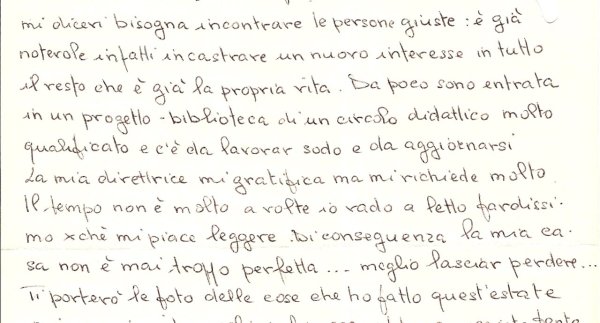 mi dicevi bisogna incontrare le persone giuste : è già
notevole infatti incastrare un nuovo interesse in tutto
il resto che è già la propria vita. Da poco sono entrata
in un progetto-biblioteca di un circolo didattico molto
qualificato e c'è da lavorar sodo e da aggiornarsi
La mia direttrice mi gratifica ma mi richiede molto
Il tempo non è molto a volte io vado a letto tardissi-
mo xchè mi piace leggere Di conseguenza la mia ca-
sa non è mai troppo perfetta... meglio lasciar perdere...
Ti porterò le foto delle cose che ho fatto quest'estate